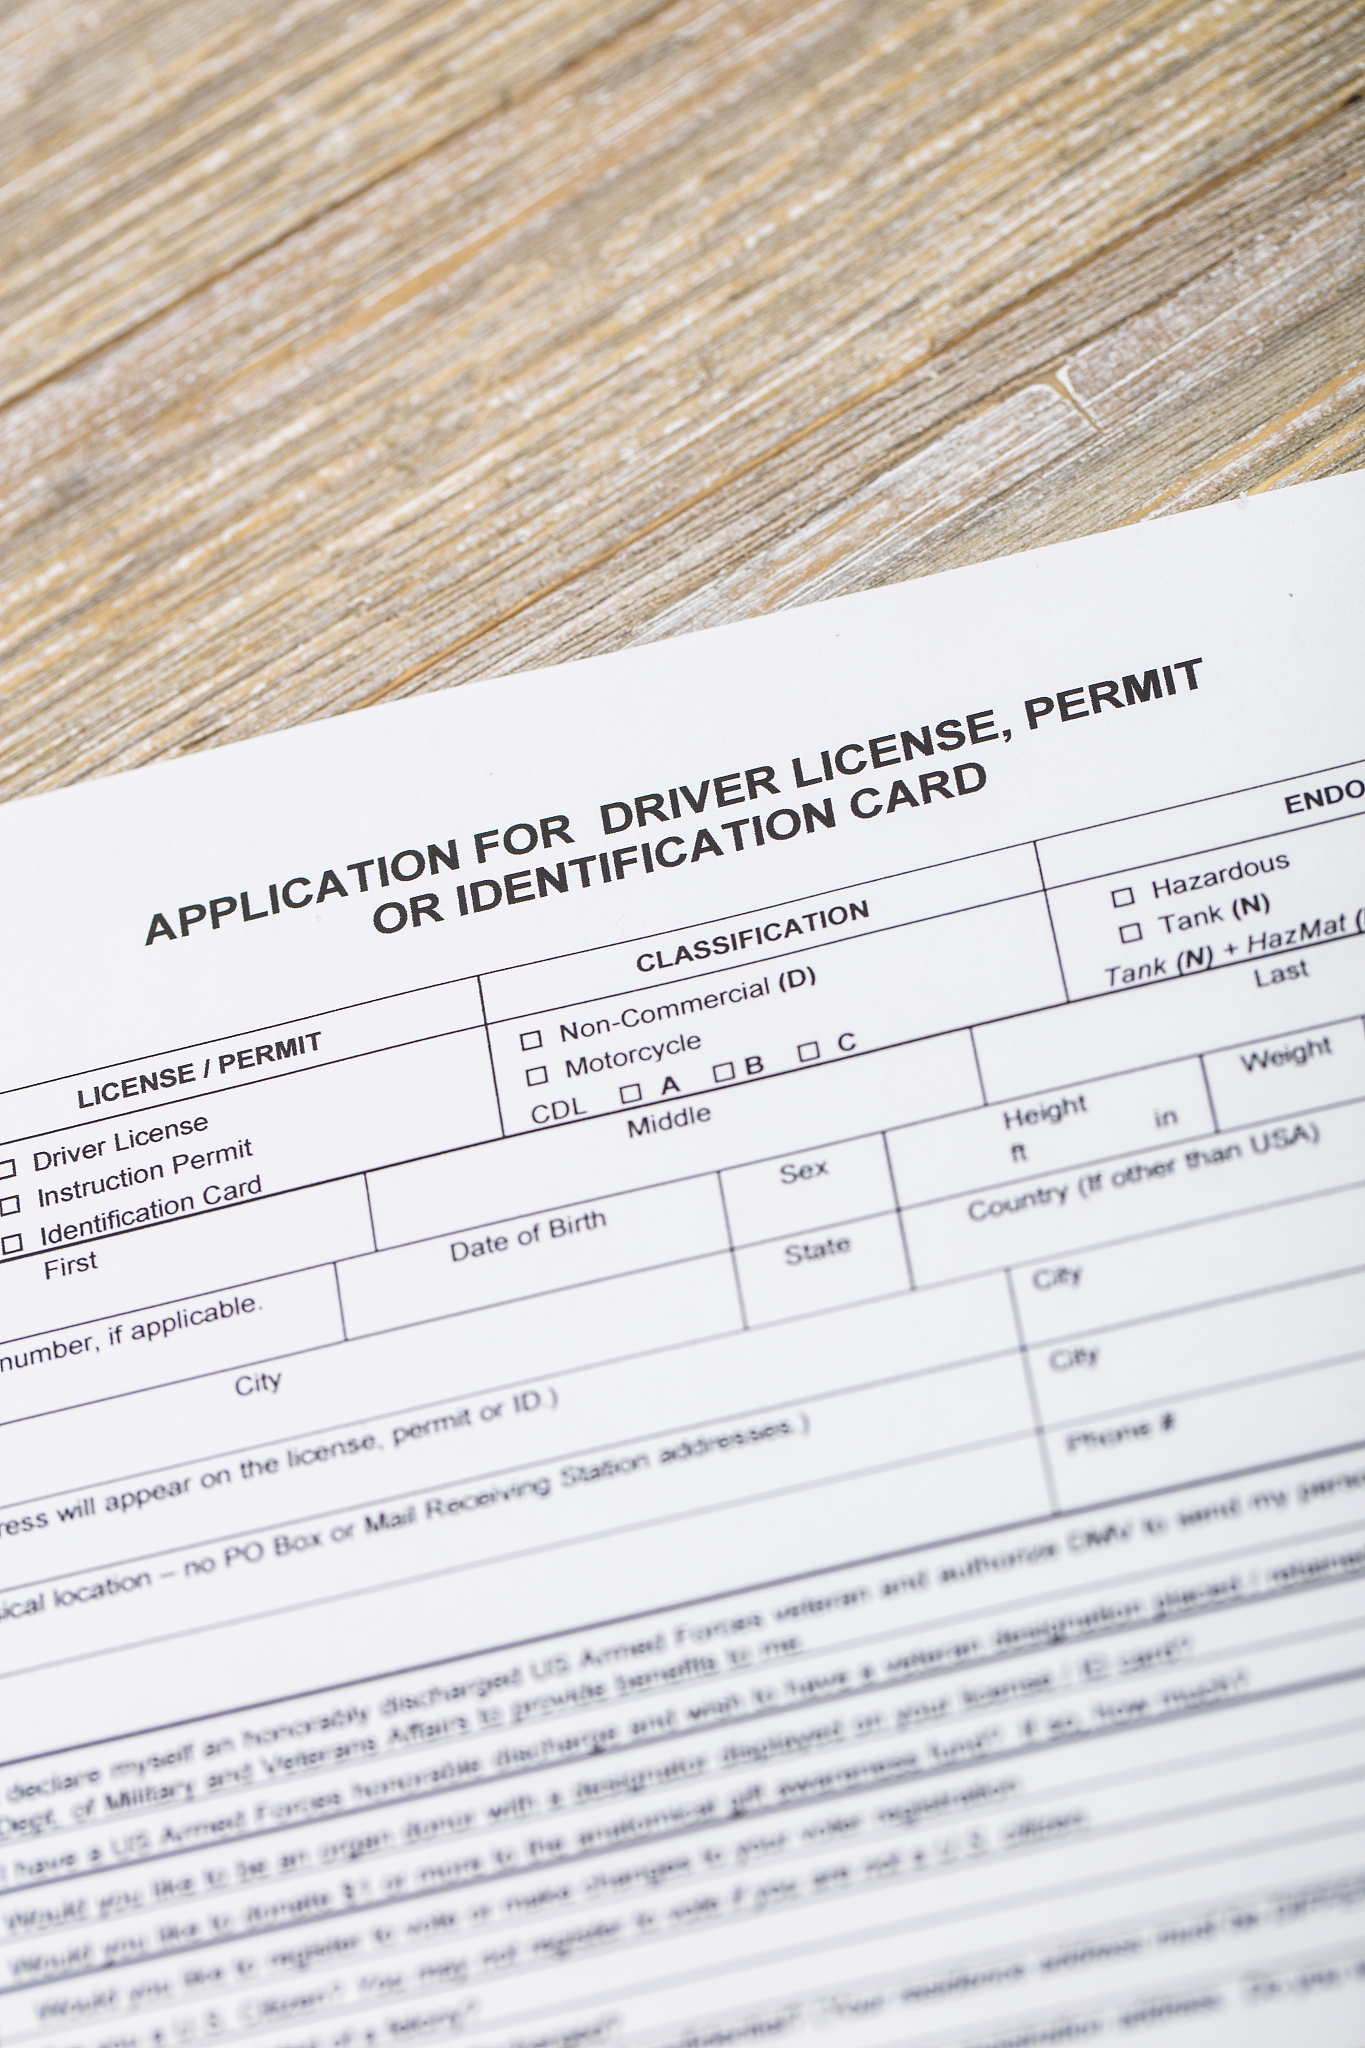 APPLICATION FOR DRIVER LICENSE, PERMIT
OR IDENTIFICATION CARD
LICENSE / PERMIT
Driver License
Instruction Permit
Identification Card
CLASSIFICATION
Non-Commercial (D)
Motorcycle
CDL A B C
ENDO
Hazardous
Tank (N)
Tank (N) + HazMat (
First
Middle
Last
number, if applicable.
Date of Birth
Sex
Height
ft in
Weight
City
State
Country (If other than USA)
ress will appear on the license, permit or ID.)
City
ical location – no PO Box or Mail Receiving Station addresses.)
City
Phone #
declare myself an honorably discharged US Armed Forces veteran and authorize DMV to send my perso
Dept. of Military and Veterans Affairs to provide benefits to me.
I have a US Armed Forces honorable discharge and wish to have a veteran designation placed / retained
Would you like to be an organ donor with a designator displayed on your license / ID card?
Would you like to donate $1 or more to the anatomical gift awareness fund? If so, how much?
Would you like to register to vote or make changes to your voter registration
you a U.S. Citizen? You may not register to vote if you are not a U.S. citizen.
of a felony?